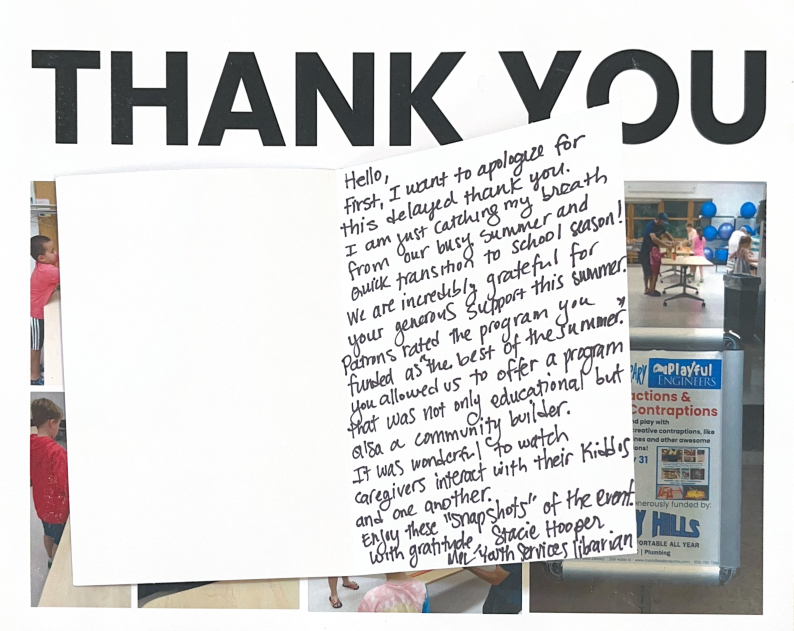 THANK YOU
Hello,
First, I want to apologize for
this delayed thank you.
I am just catching my breath
from our busy summer and
quick transition to school season!
We are incredibly grateful for
your generous support this summer.
Patrons rated the program you
funded as "the best of the summer."
You allowed us to offer a program
that was not only educational but
also a community builder.
It was wonderful to watch
caregivers interact with their kiddos
and one another.
Enjoy these "snapshots" of the event.
With gratitude, Stacie Hooper
Youth Services Librarian
Playful
ENGINEERS
actions &
Contraptions
nd play with
creative contraptions, like
nes and other awesome
ons!
y 31
enerously funded by:
Y HILLS
FORTABLE ALL YEAR
| Plumbing